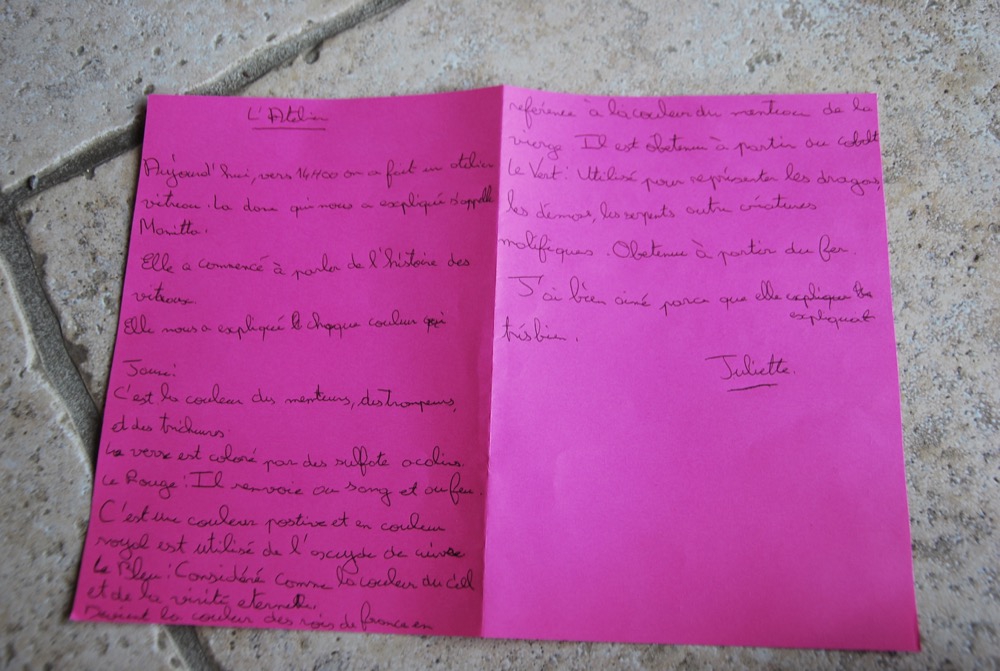 L'Atelier
Aujourd'hui, vers 14H00 on a fait un atelier
vitraux. La dame qui nous a expliqué s'appelle
Manitta.
Elle a commencé à parler de l'histoire des
vitraux.
Elle nous a expliqué chaque couleur
Jaune:
C'est la couleur des menteurs, des trompeurs,
et des tricheurs.
Le verre est coloré par des sulfate acalins.
Le Rouge: Il renvoie au sang et au feu.
C'est une couleur postive et en couleur
royal est utilisé de l'oxcyde de cuivre
Le Bleu: Considéré comme la couleur du ciel
et de la vérité eternelle.
Devient la couleur des rois de france en
reférence à la couleur du menteau de la
vierge Il est obetenu à partir au cobalt
Le Vert: Utilisé pour représenter les dragons,
les démons, les serpents autre créatures
malifiques. Obetenu à partir du fer.
J'ai bien aimé parce que elle
expliquait
très bien.
Juliette.